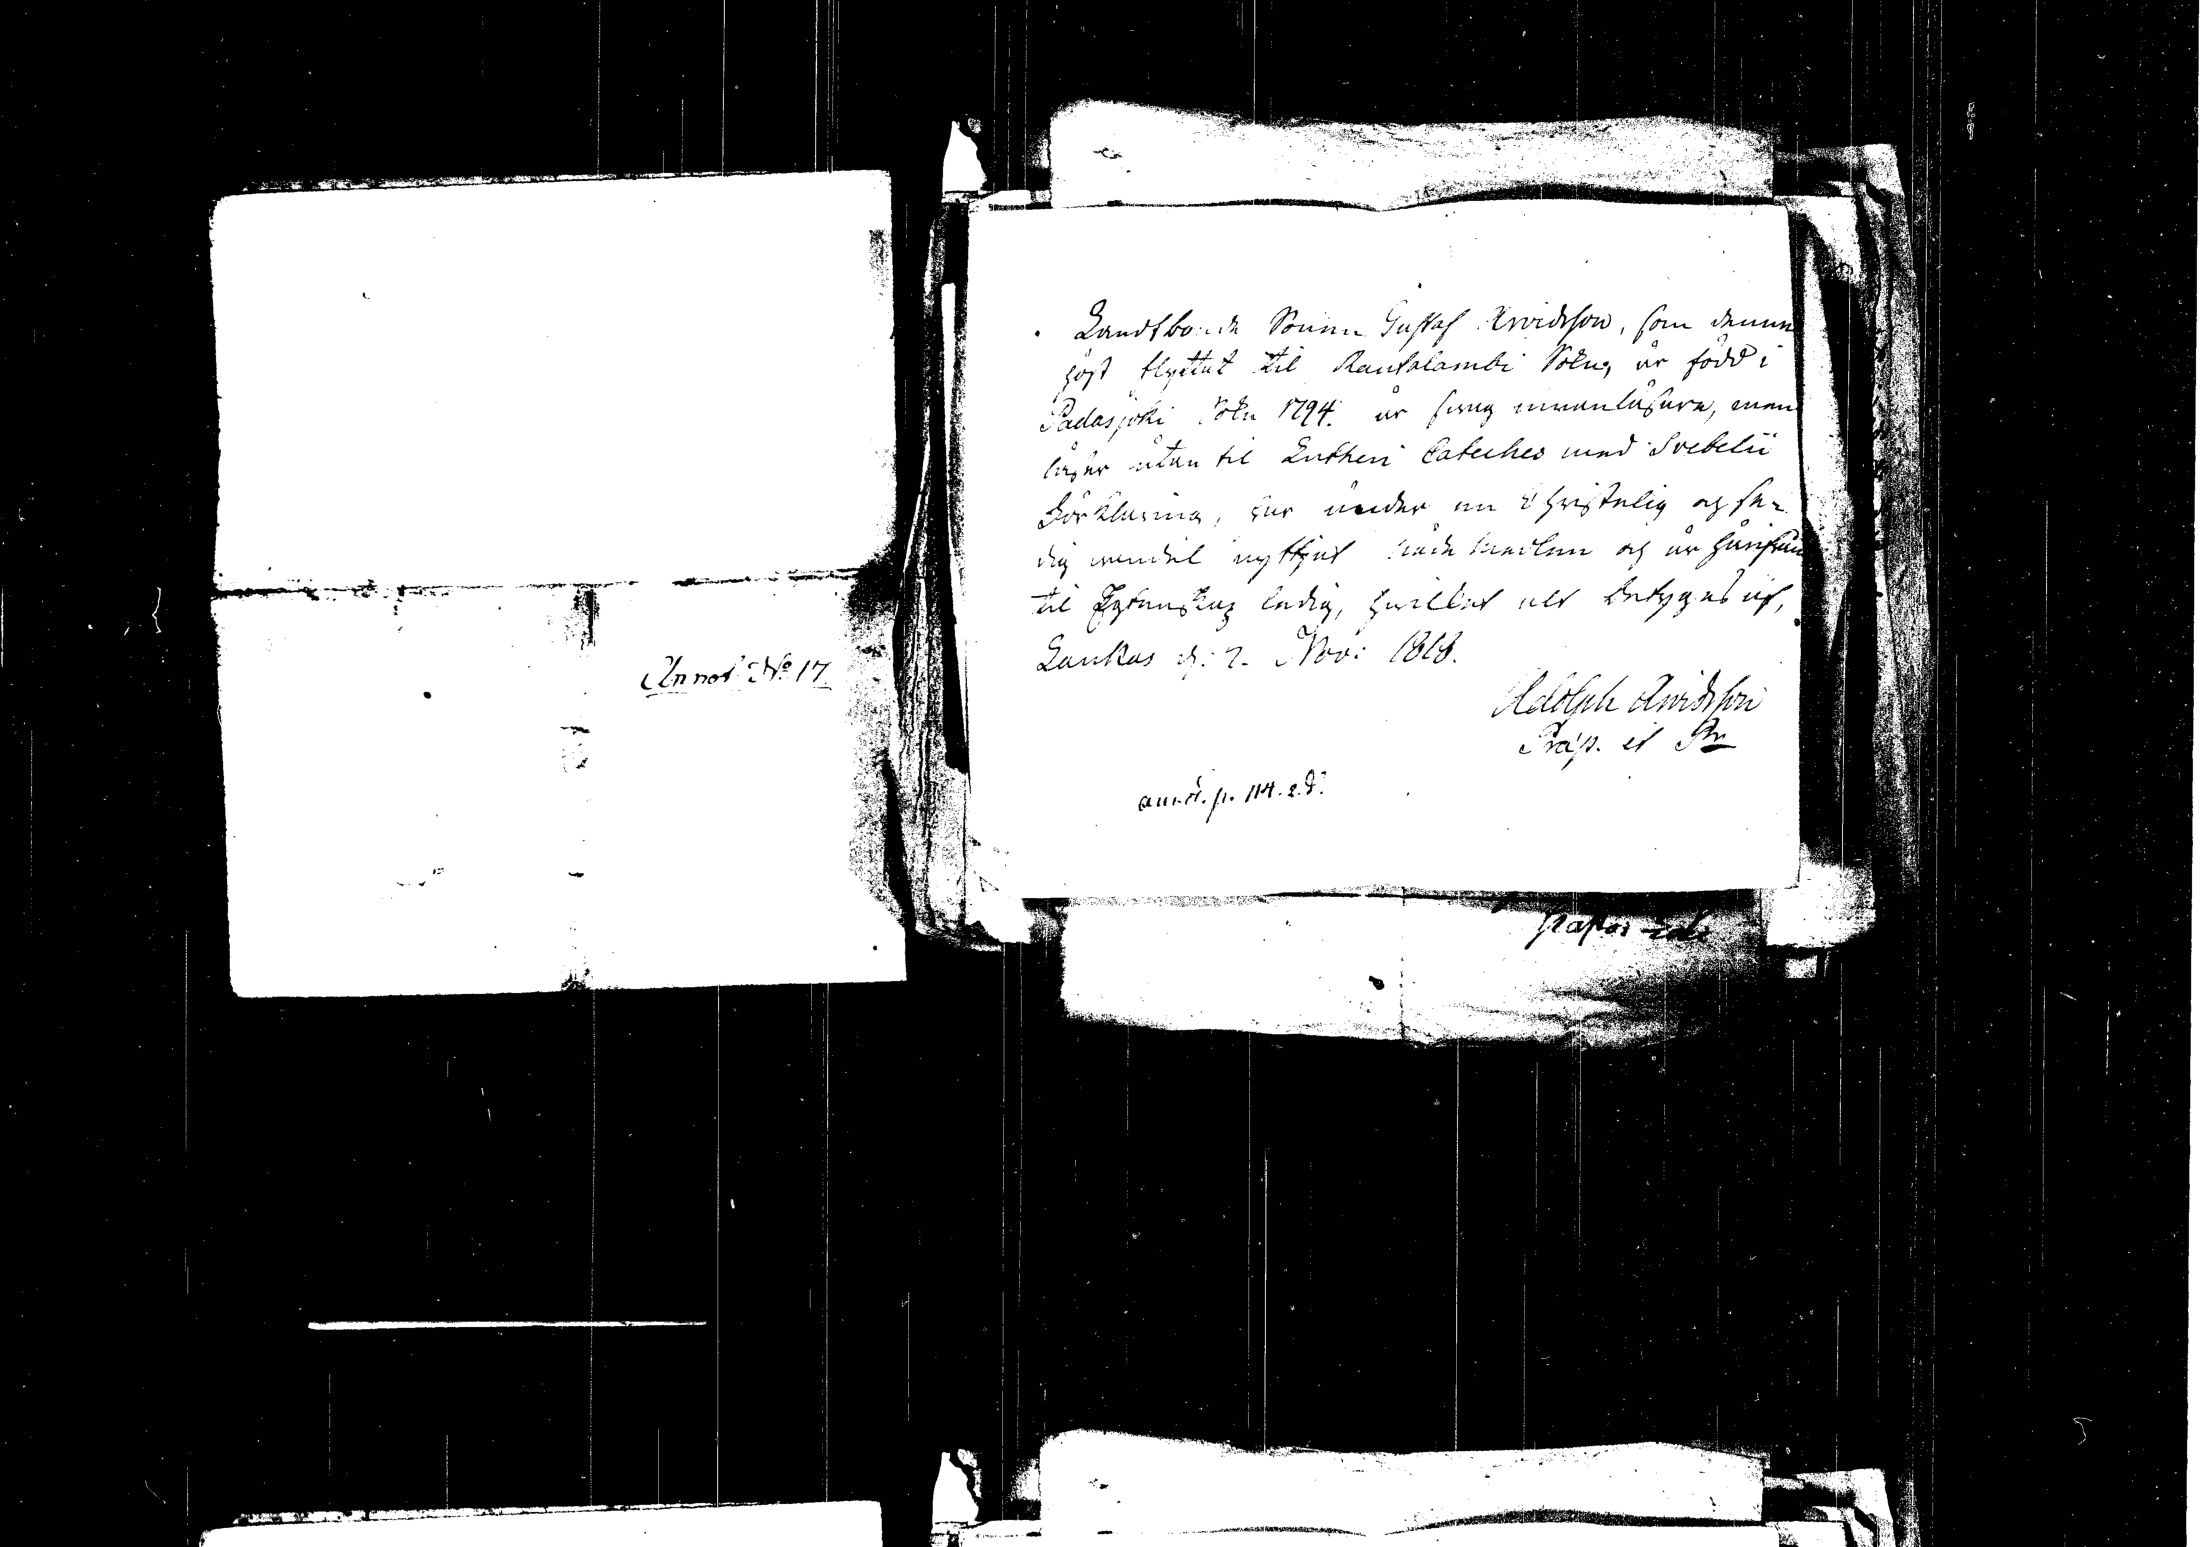 Annot: No 17
Landtbonde Sonen Gustaf Arvidsson, som denna
höst flyttat til Rautalambi Sokn, är född i
Padasjoki Sokn 1794. är svag innanläsare, men
läser utan til Lutheri Cateches med Svebelii
Förklaring, har under en Christelig och se-
dig vandel nyttjat nåde medlen och är härifrån
til Egtenskap ledig, hvilket alt betygas af,
Laukas d: 2. Nov: 1818.
Adolph Arvidsson
Præp. et Pr
annot. p. 114. e.d.